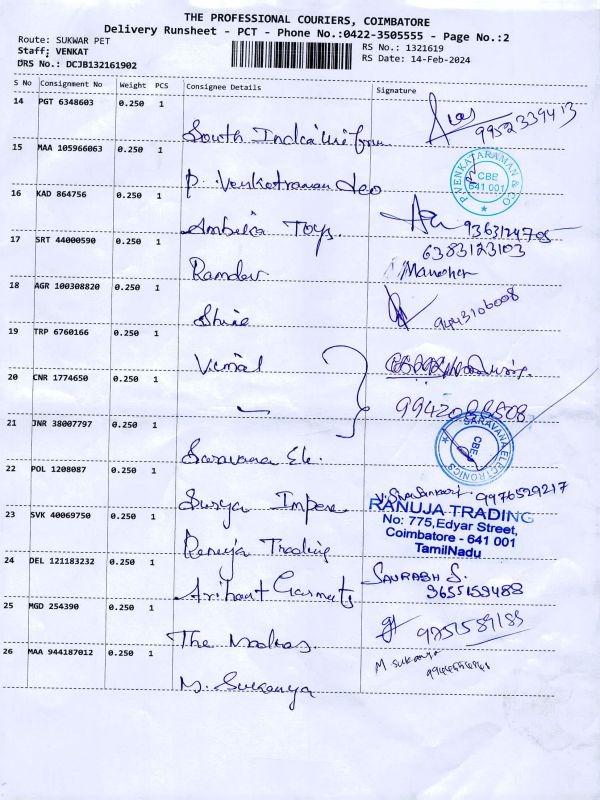 THE PROFESSIONAL COURIERS, COIMBATORE
Delivery Runsheet - PCT - Phone No.:0422-3505555 - Page No.:2
Route: SUKWAR PET
RS No.: 1321619
Staff: VENKAT
RS Date: 14-Feb-2024
DRS No.: DCJB132161902
S No Consignment No Weight PCS Consignee Details Signature
14 PGT 6348603 0.250 1
South 9952339413
15 MAA 105966063 0.250 1
P. VENKATARAMAN & CO
CBE
641 001
P. Venkotraman
16 KAD 864756 0.250 1
Ambika Toys. 9363124705
17 SRT 44000590 0.250 1
6383123103
Ramdev Manohar
18 AGR 100308820 0.250 1
9443106008
Shrie
19 TRP 6760166 0.250 1
Vimal
20 CNR 1774650 0.250 1
21 JNR 38007797 0.250 1
SARAVANA ELECTRONICS
CBE
Saravana Ele.
22 POL 1208087 0.250 1
V. Sivasankari 9976529217
Surya Impex
23 SVK 40069750 0.250 1
RANUJA TRADING
No: 775,Edyar Street,
Coimbatore - 641 001
TamilNadu
Renuja Trading
24 DEL 121183232 0.250 1
SAURABH S.
9655159488
Arihant Garments
25 MGD 254390 0.250 1
9751589189
The Madras.
26 MAA 944187012 0.250 1
M sukanya
M. Sukanya